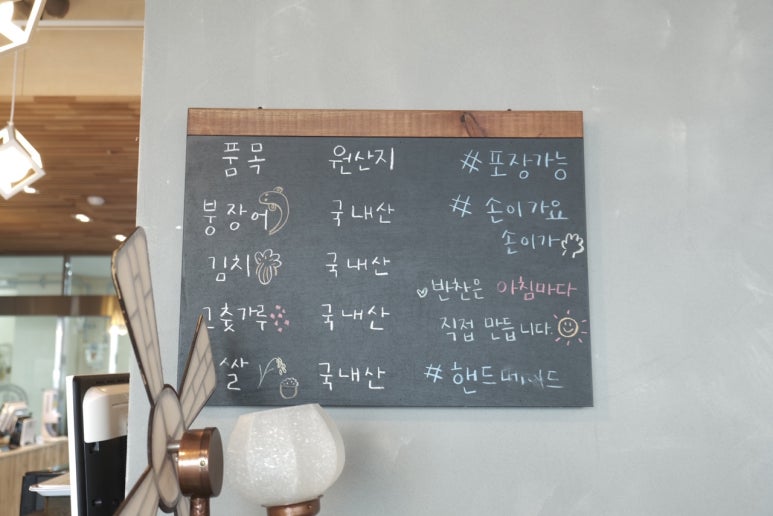 품목 원산지
붕장어 국내산
김치 국내산
고춧가루 국내산
쌀 국내산
#포장가능
# 손이가요
손이가
반찬은 아침마다
직접 만듭니다.
#핸드메이드